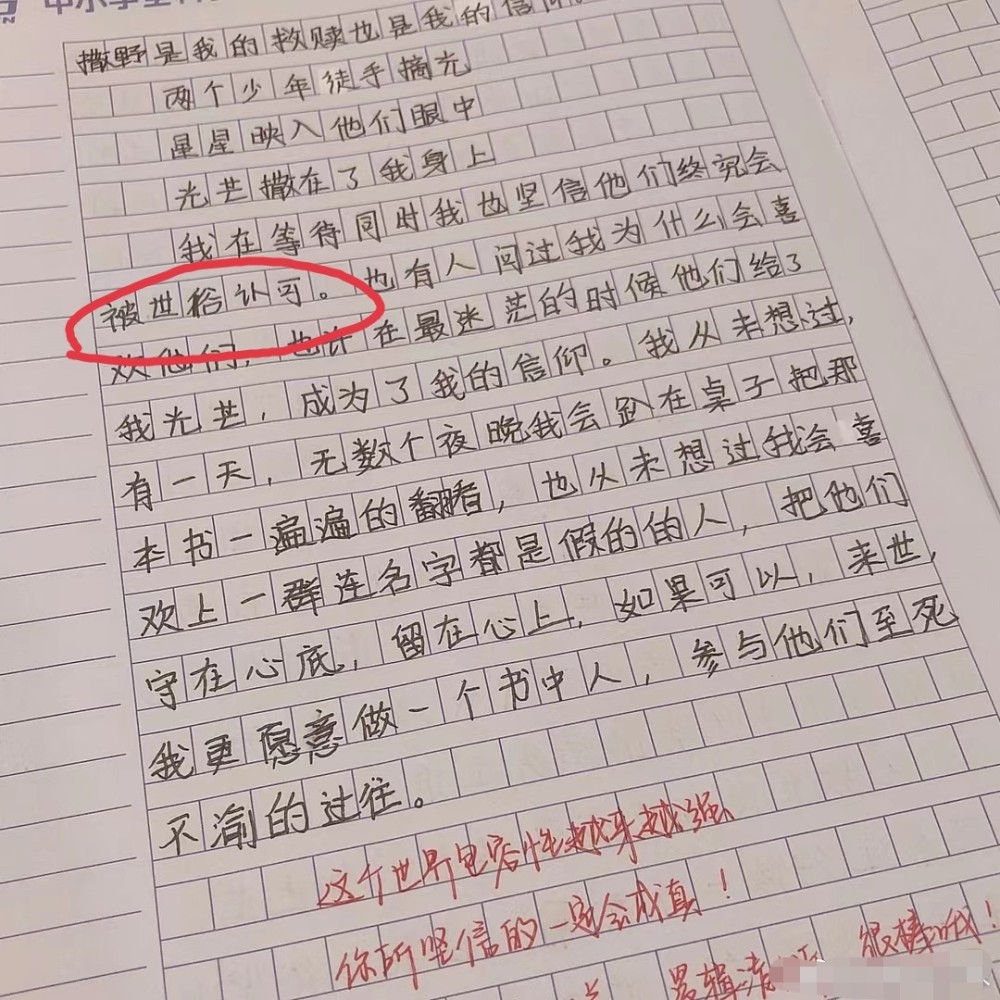 中小学
撒野是我的救赎也是我的信仰。
两个少年徒手摘光
星星映入他们眼中
光芒撒在了我身上
我在等待同时我也坚信他们终究会
被世俗认可。也有人问过我为什么会喜
欢他们，也许在最迷茫的时候他们给了
我光芒，成为了我的信仰。我从未想过，
有一天，无数个夜晚我会趴在桌子把那
本书一遍遍的翻看，也从未想过我会喜
欢上一群连名字都是假的的人，把他们
守在心底，留在心上，如果可以，来世，
我更愿意做一个书中人，参与他们至死
不渝的过往。
这个世界包容性越来越强
你所坚信的一定会成真！
逻辑清 很棒哦！